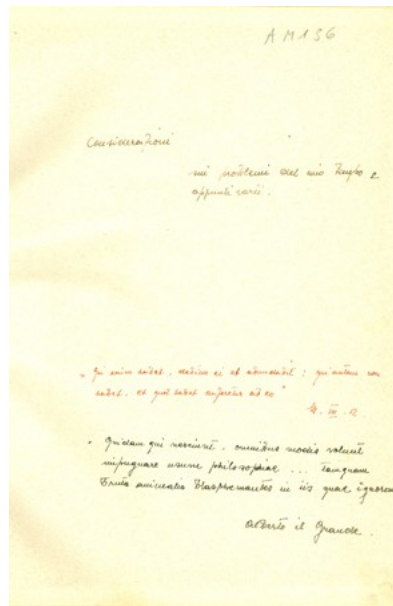 AM136
Considerazioni
sui problemi del mio tempo e
appunti varii.
" Qui enim habet, dabitur ei et abundabit ; qui autem non
habet, et quod habet auferetur ab eo "
M. XIII. 12.
" Quidam qui nesciunt, omnibus modis volunt
impugnare usum philosophiae ... tamquam
bruta animalia blasphemantes in iis quae ignorant
Alberto il Grande.